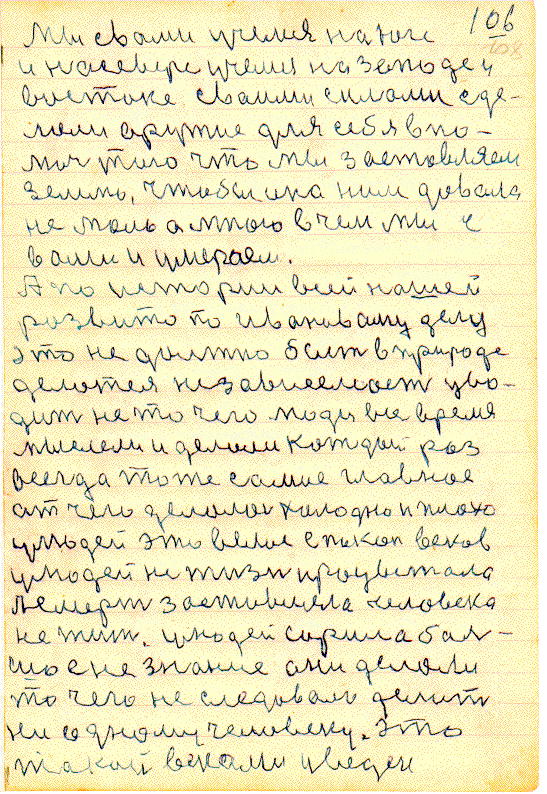 106
108
мы с вами учемся на юге
и на севере учемся на западе и
востоке своими силами сде-
лали аружие для себя в по-
мач того что мы заставляем
землю, чтобы она ним давала
не мала а много в чем мы с
вами и умераем.
А по истории всей нашей
развито по Ивановаму делу
это не должно быт в природе
делотся независемост уво-
дит не то чего люди все время
мыслели и делали каждый раз
всегда тоже самие главное
ат чего делалос холодно и плохо
у людей это велос с покон веков
у людей не жизн процветала
а смерт заставляла человека
не жит. у людей сарила бал-
шое не знание они делали
то чего не следовало делат
ни одному человеку. Это
такой веками уведен